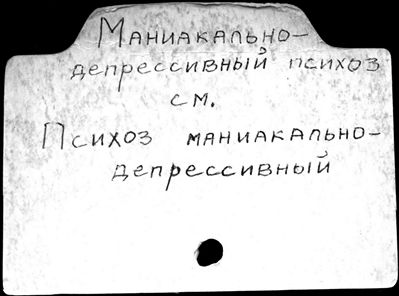 Маниакально-
депрессивный психоз
см.
Психоз маниакально-
депрессивный